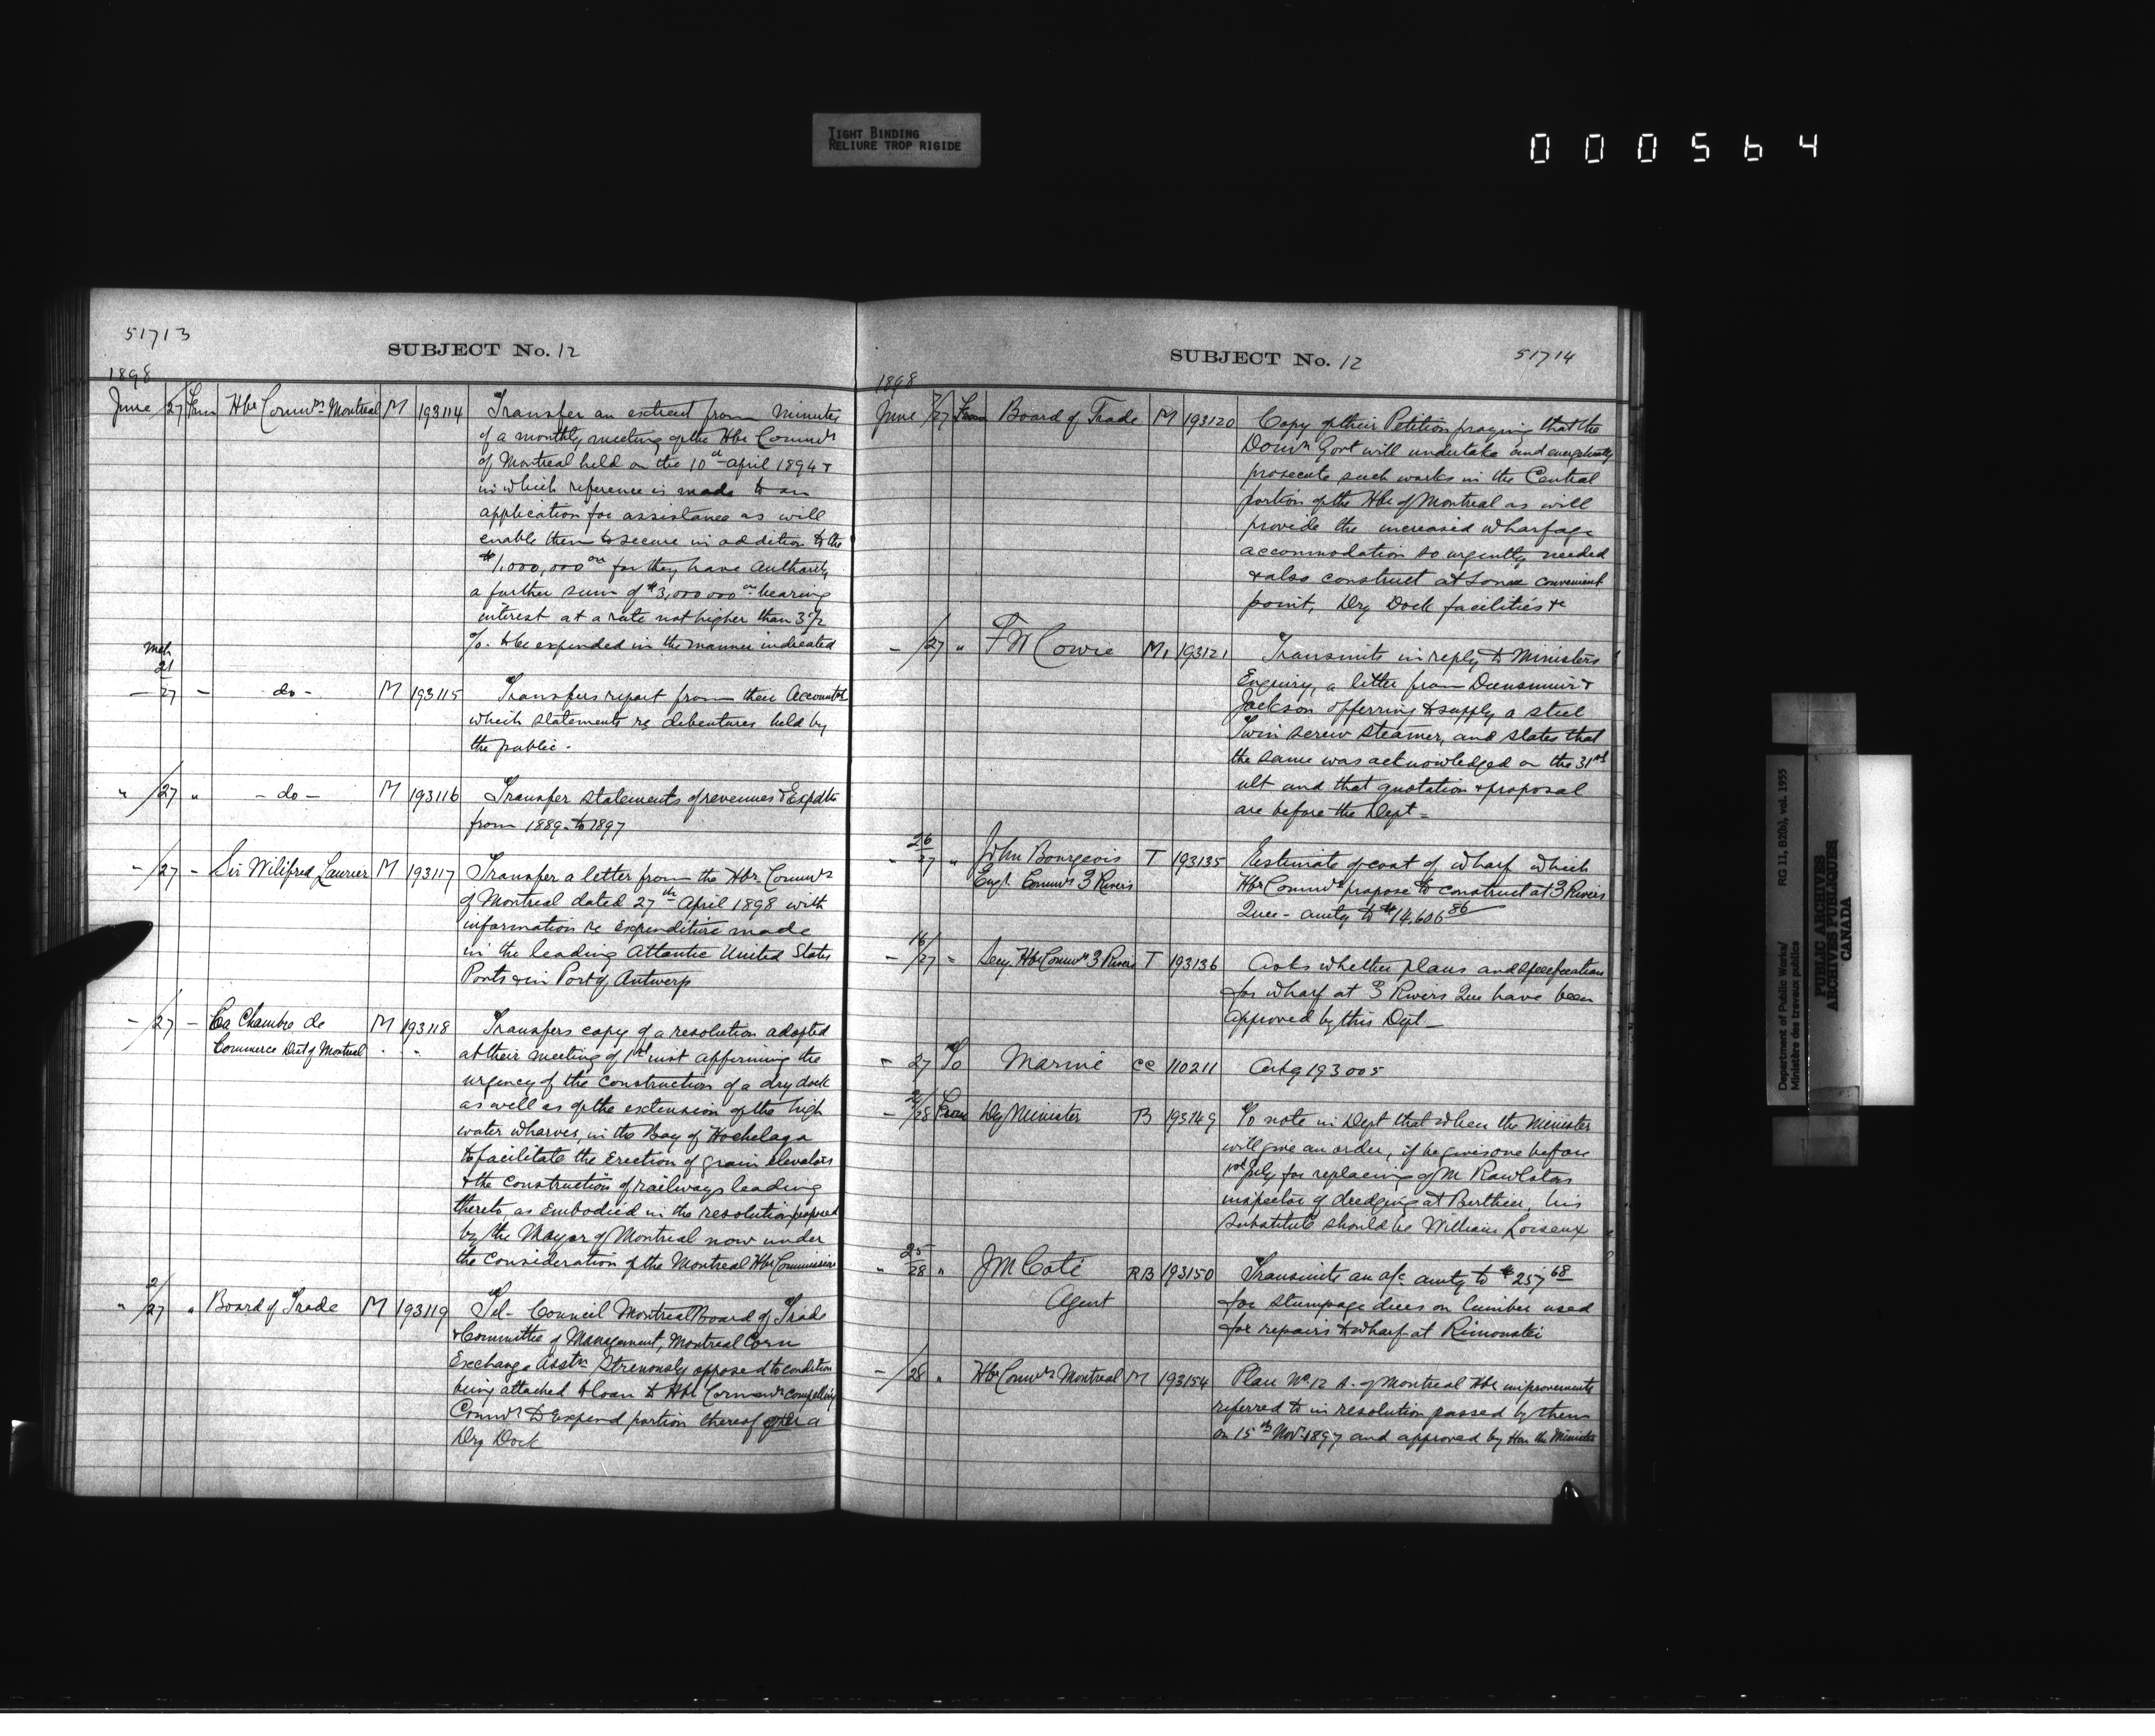 TIGHT BINDING
RELIURE TROP RIGIDE
000564
51713
SUBJECT No. 12
1898
June /27 From Hbr Commrs Montreal M 193114 Transfer an extract from minutes
of a monthly meeting of the Hbr Commrs
of Montreal held on the 10th April 1894 &
in which reference is made to an
application for assistance as will
enable them to secure in addition to the
$1,000,000 00 for they have Authority
a further sum of $3,000 000 00 bearing
interest at a rate not higher than 3 1/2
%. to be expended in the manner indicated
Mch
21
— 27 — do — M 193115 Transfers report from their Accountant
which statements re debentures held by
the public.
" /27 " — do — M 193116 Transfer statements of revenues & Expdtre
from 1889 to 1897
" /27 — Sir Wilifred Laurier M 193117 Transfer a letter from the Hbr. Commrs
of Montreal dated 27th April 1898 with
information re expenditure made
in the leading Atlantic United States
Ports & in Port of Antwerp
— /27 — La Chambre de M 193118 Transfers copy of a resolution adopted
Commerce Dist of Montreal at their meeting of 1st inst affirming the
urgency of the construction of a dry dock
as well as of the extension of the high
water wharves, in the Bay of Hochelaga
to facilitate the Erection of grain elevators
& the construction of railways leading
thereto, as embodied in the resolution proposed
by the Mayor of Montreal now under
the consideration of the Montreal Hbr Commissioners
" 2/27 " Board of Trade M 193119 Tel - Council Montreal Board of Trade
& Committee of Management, Montreal Corn
Exchange Asstn Strenously opposed to condition
being attached to loan to Hbr Commrs compelling
Commrs to Expend portion thereof a
Dry Dock
SUBJECT No. 12
51714
1898
June /27 From Board of Trade M 193120 Copy of their Petition praying that the
Domn Govt will undertake and energetically
prosecute such works in the Central
portion of the Hbr of Montreal as will
provide the increased wharfage
accommodation so urgently needed
& also construct at some convenient
point, Dry Dock facilities &c
— /27 " F W Cowie M. 193121 Transmits in reply to Ministers
Enquiry, a letter from Dunsmuir &
Jackson offerring to supply a steel
Twin screw steamer, and states that
the same was acknowledged on the 31st
ult and that quotation & proposal
are before the Dept =
" 26/27 " John Bourgeois T 193135 Estimate of cost of wharf which
Engr. Commrs 3 Rivers Hbr Commrs propose to construct at 3 Rivers
Quee - amtg to $14,606 86
— 16/27 " Secy Hbr Commrs 3 Rivers T 193136 Asks whether plans and specification
for wharf at 3 Rivers Que have been
approved by this Dept —
— 27 To Marine CC 110211 Ackg 193005
— /28 From Dy Minister B 193149 To note in Dept that when the Minister
will give an order, if he gives one before
1st July for replacing of M
inspector of dredging at Berthier, his
substitute should be William Loiseux
" 25/28 " J M Coté RB 193150 Transmits an a/c amtg to $257 68
Agent for stumpage dues on lumber used
for repairs to wharf at Rimouski
— /28 " Hbr Commrs Montreal M 193154 Plan No. 12 A. of Montreal Hbr improvements
referred to in resolution passed by them
on 15th Nov. 1897 and approved by Hon the Minister
Department of Public Works/
Ministère des travaux publics
RG 11, B2(b), vol. 1955
PUBLIC ARCHIVES
ARCHIVES PUBLIQUES
CANADA